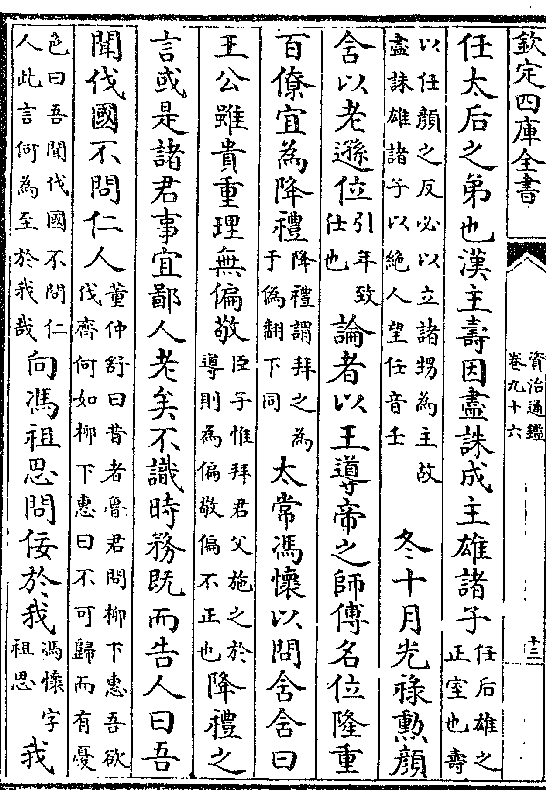 欽定四庫全書
資治通鑑
卷九十六
十三
任太后之弟也漢主壽因盡誅成主雄諸子
任后雄之
正室也壽
以任顔之反必以立諸甥為主故
盡誅雄諸子以絶人望任音壬
冬十月光祿勲顔
含以老遜位
引年致
仕也
論者以王導帝之師傅名位隆重
百僚宜為降禮
降禮謂拜之為
于偽翻下同
太常馮懷以問含含曰
王公雖貴重理無偏敬
臣子惟拜君父施之於
導則為偏敬偏不正也
降禮之
言或是諸君事宜鄙人老矣不識時務既而告人曰吾
聞伐國不問仁人
董仲舒曰昔者魯君問柳下惠吾欲
伐齊何如柳下惠曰不可歸而有憂
色曰吾聞伐國不問仁
人此言何為至於我哉
向馮祖思問佞於我
馮懷字
祖思
我